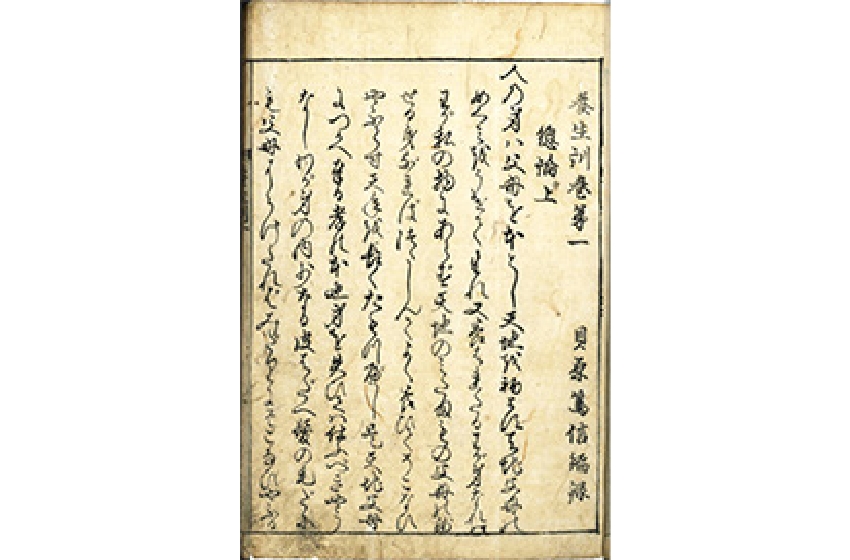 養生訓巻第一 貝原篤信編録
總論上
人の身ハ父母を本とし天地を初とす天地父母の
めぐみをうけて生れ又養はれたるわが身なれば
わが私の物にあらず天地のみたまもの父母の残
せる身なればつつしんでよく養ひてそこなひ
やぶらず天年を長くたもつべし是天地父母
につかへ奉る孝の本也身を失ひてハ仕ふべきやう
なしわが身の内少なる皮はだへ髪の毛だに
も父母にうけたればみだりにそこなひやぶる